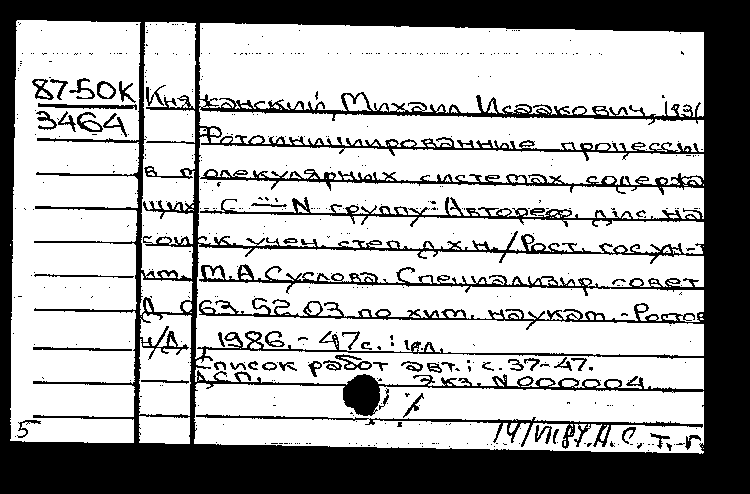 87-50К
3464
Княжанский, Михаил Исаакович, 193(
Фотоинициированные процессы
в молекулярных системах, содержа
щих C ⁚⁚⁚ N группу: Автореф. дис. на
соиск. учен. степ. д.х.н./Рост. гос. ун-т
им. М.А.Суслова. Специализир. совет
Д 063.52.03 по хим. наукам.-Ростов
н/Д, 1986.- 47с.: ил.
Список работ авт.: с.37-47.
ДСП. Экз. N 000004.
5 14/VII87. А.С. т.-г.